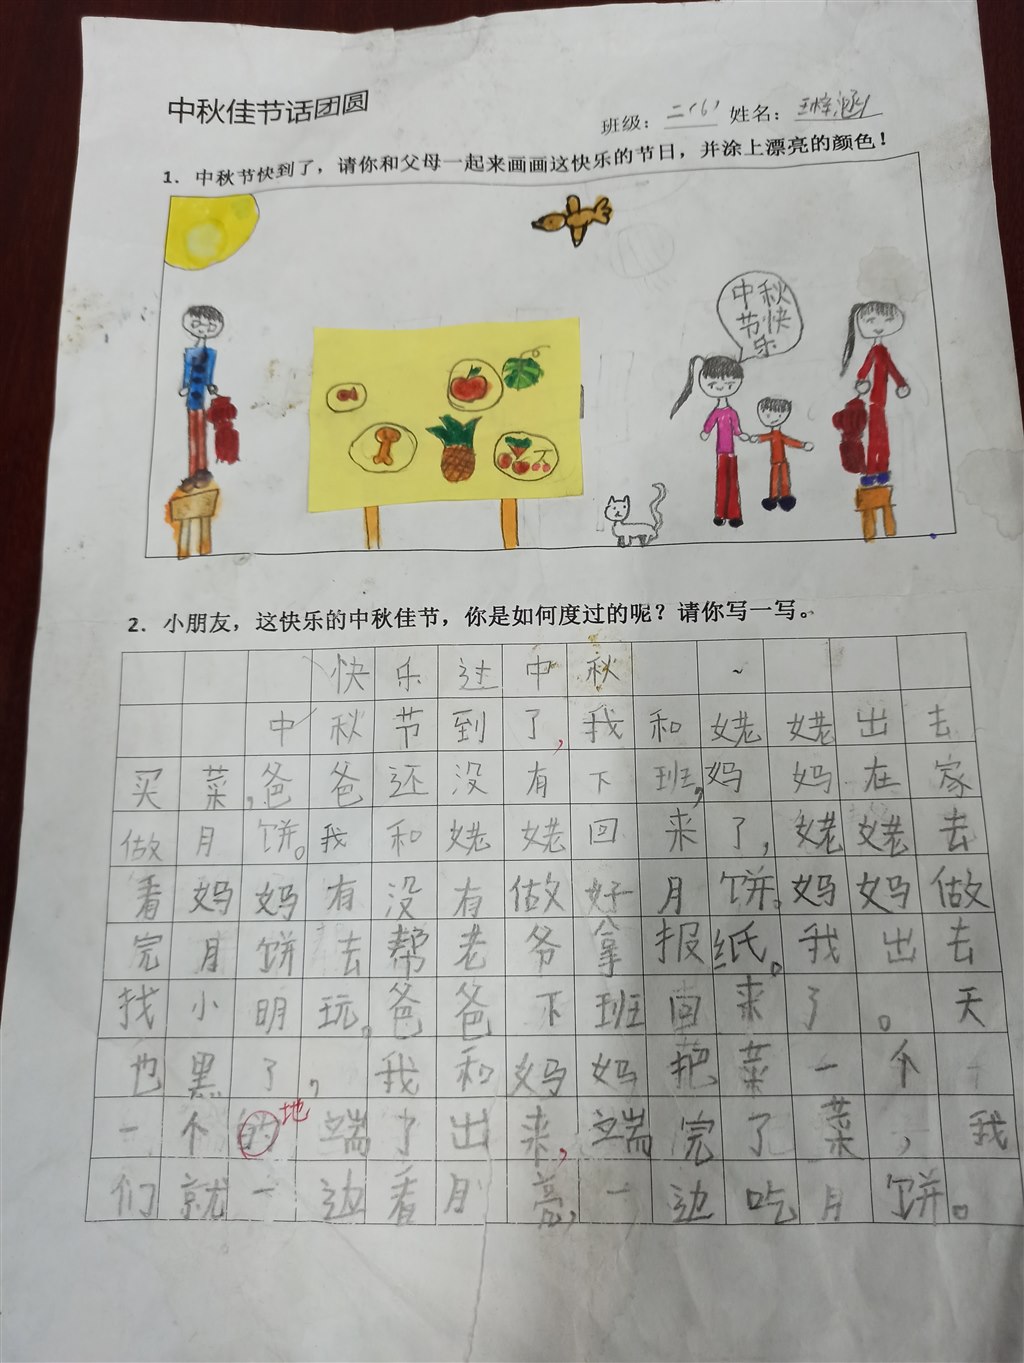 中秋佳节话团圆
班级：二（6） 姓名：王梓涵
1. 中秋节快到了，请你和父母一起来画画这快乐的节日，并涂上漂亮的颜色！
中秋
节快
乐
2. 小朋友，这快乐的中秋佳节，你是如何度过的呢？请你写一写。
快乐过中秋
中秋节到了，我和姥姥出去
买菜，爸爸还没有下班，妈妈在家
做月饼。我和姥姥回来了，姥姥去
看妈妈有没有做好月饼。妈妈做
完月饼去帮老爷拿报纸。我出去
找小明玩。爸爸下班回来了。天
也黑了，我和妈妈把菜一个
地
一个的端了出来，端完了菜，我
们就一边看月亮，一边吃月饼。